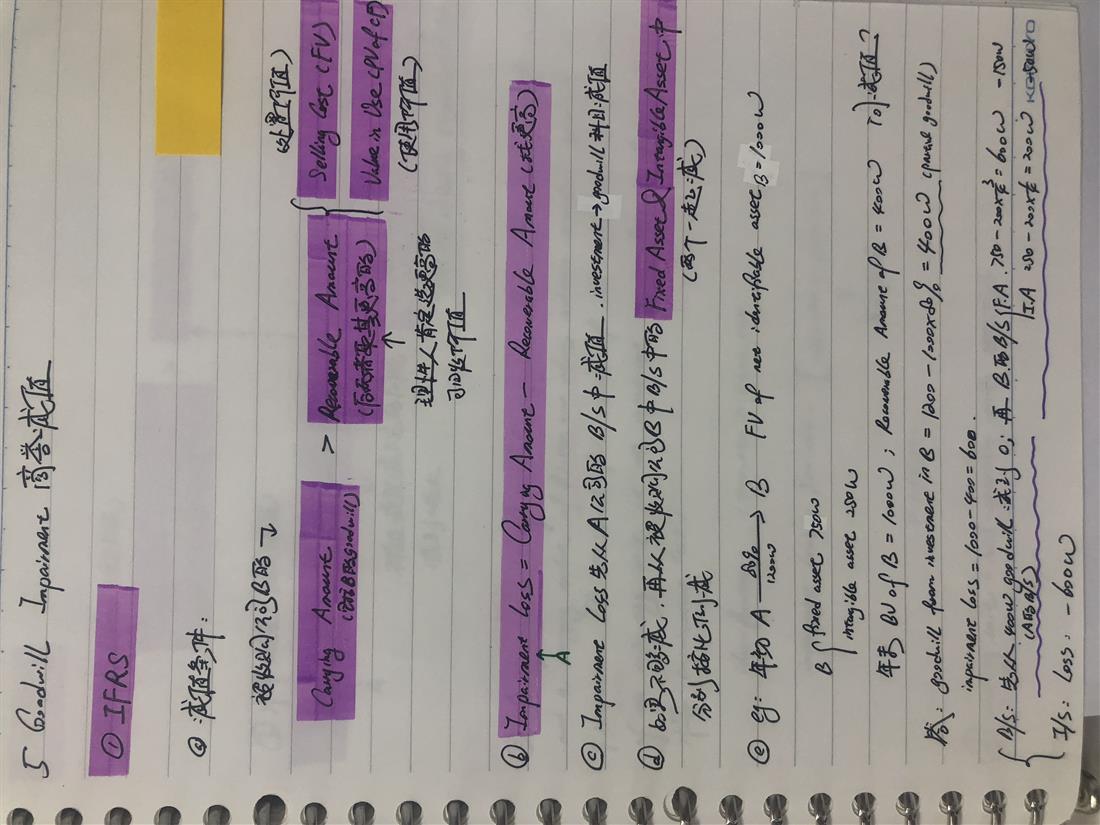 5 Goodwill Impairment 商誉减值
① IFRS
ⓐ 减值条件:
被收购公司B的↓
Carrying Amount > Recoverable Amount { Selling Cost (FV) (处置价值)
(包B的goodwill) (后两者取其更高的) Value in Use (PV of CF) (使用价值)
↑
理性人肯定选更高的
可回收价值
ⓑ Impairment Loss = Carrying Amount — Recoverable Amount (就更高)
↑
A
ⓒ Impairment Loss 先从A公司的 B/S 中减值. investment → goodwill 科目减值
ⓓ 如果不够减, 再从被收购公司B中B/S中的 Fixed Asset & Intangible Asset 中
分别按比例减 (两个一起减)
ⓔ eg: 年初 A → B FV of net identifiable asset B = 1000W
1200W
B { fixed asset 750W
intangible asset 250W
年末 BV of B = 1000W ; Recoverable Amount of B = 400W 问减值?
答: goodwill from investment in B = 1200 - 1000× = 400W (partial goodwill)
impairment loss = 1000-400 = 600.
{ B/S: 先从 400W goodwill 减到0; 再 B的B/S { F.A 750-200× = 600W -150W
(A的B/S) I.A 250-200× = 200W -50W
I/S: Loss: -600W